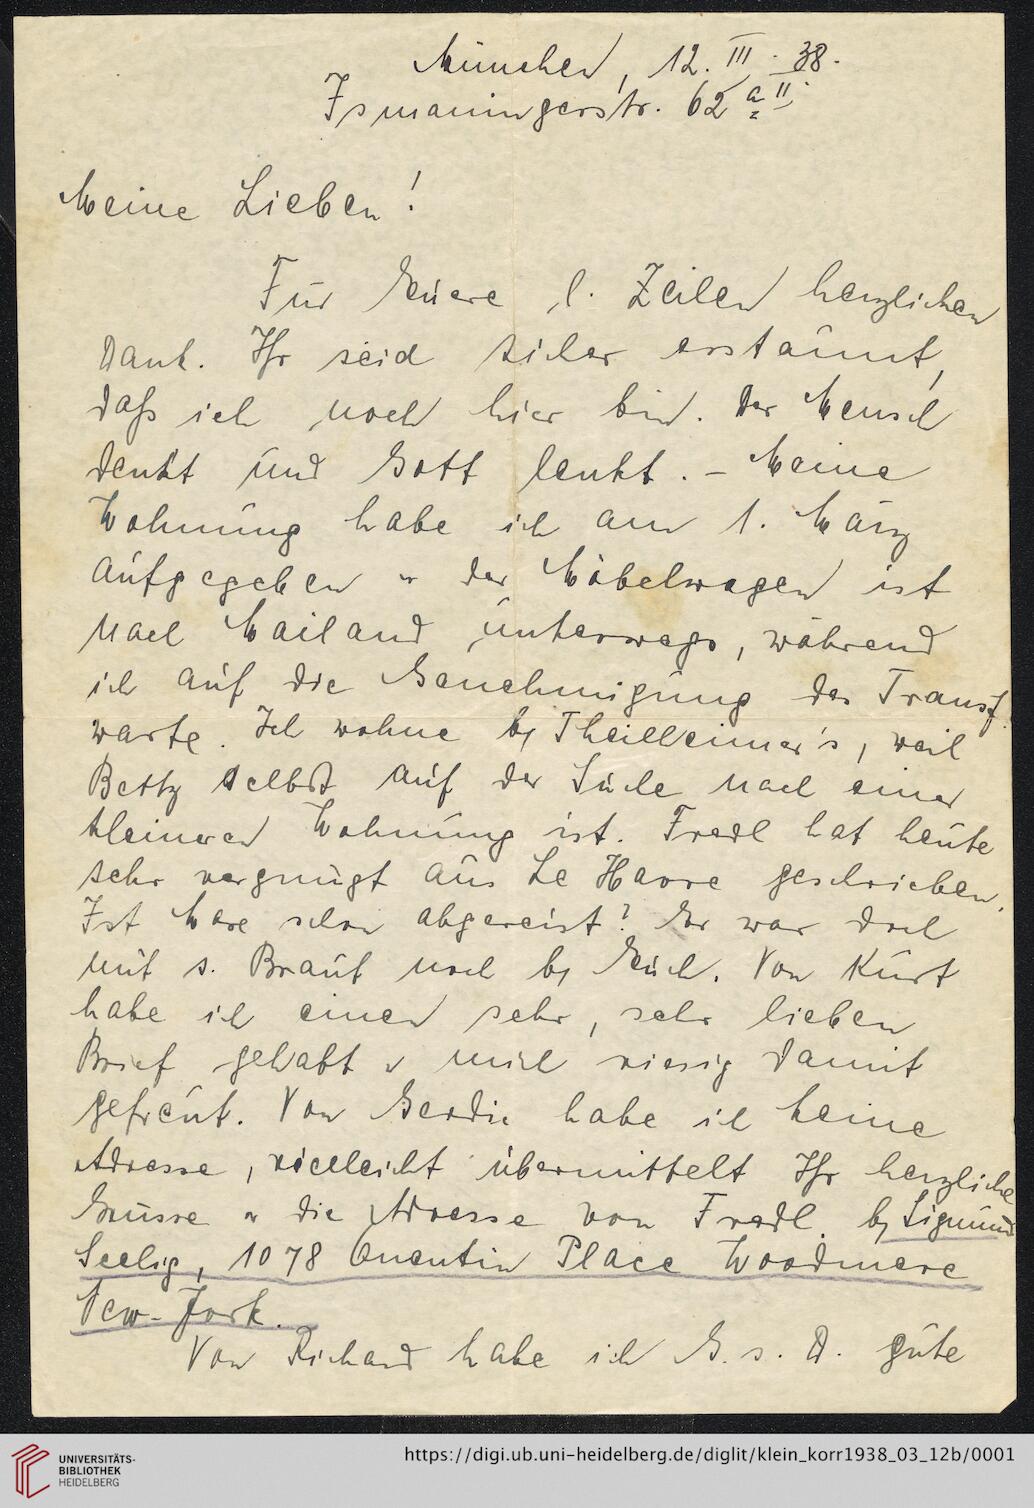 München, 12. III. 38.
Ismaningerstr. 62 a II.
Meine Lieben!
Für Euere l. Zeilen herzlichen
Dank. Ihr seid sicher erstaunt,
daß ich noch hier bin. Der Mensch
denkt und Gott lenkt. – Meine
Wohnung habe ich am 1. März
aufgegeben u der Möbelwagen ist
nach Mailand unterwegs, während
ich auf die Genehmigung des Transf.
warte. Ich wohne bj Theilheimer's, weil
Betty selbst auf der Suche nach einer
kleineren Wohnung ist. Fredl hat heute
sehr vergnügt aus Le Havre geschrieben.
Ist Marc schon abgereist? Er war doch
mit s. Braut noch bj Euch. Von Kurt
habe ich einen sehr, sehr lieben
Brief gehabt u mich riesig damit
gefreut. Von Gerdi habe ich keine
Adresse, vielleicht übermittelt Ihr herzliche
Grüsse u die Adresse von Fredl. bj Sigmund
Seelig, 1078 Quentin Place Woodmere
New-York.
Von Richard habe ich G. s. D. gute
UNIVERSITÄTS-
BIBLIOTHEK
HEIDELBERG
https://digi.ub.uni-heidelberg.de/diglit/klein_korr1938_03_12b/0001